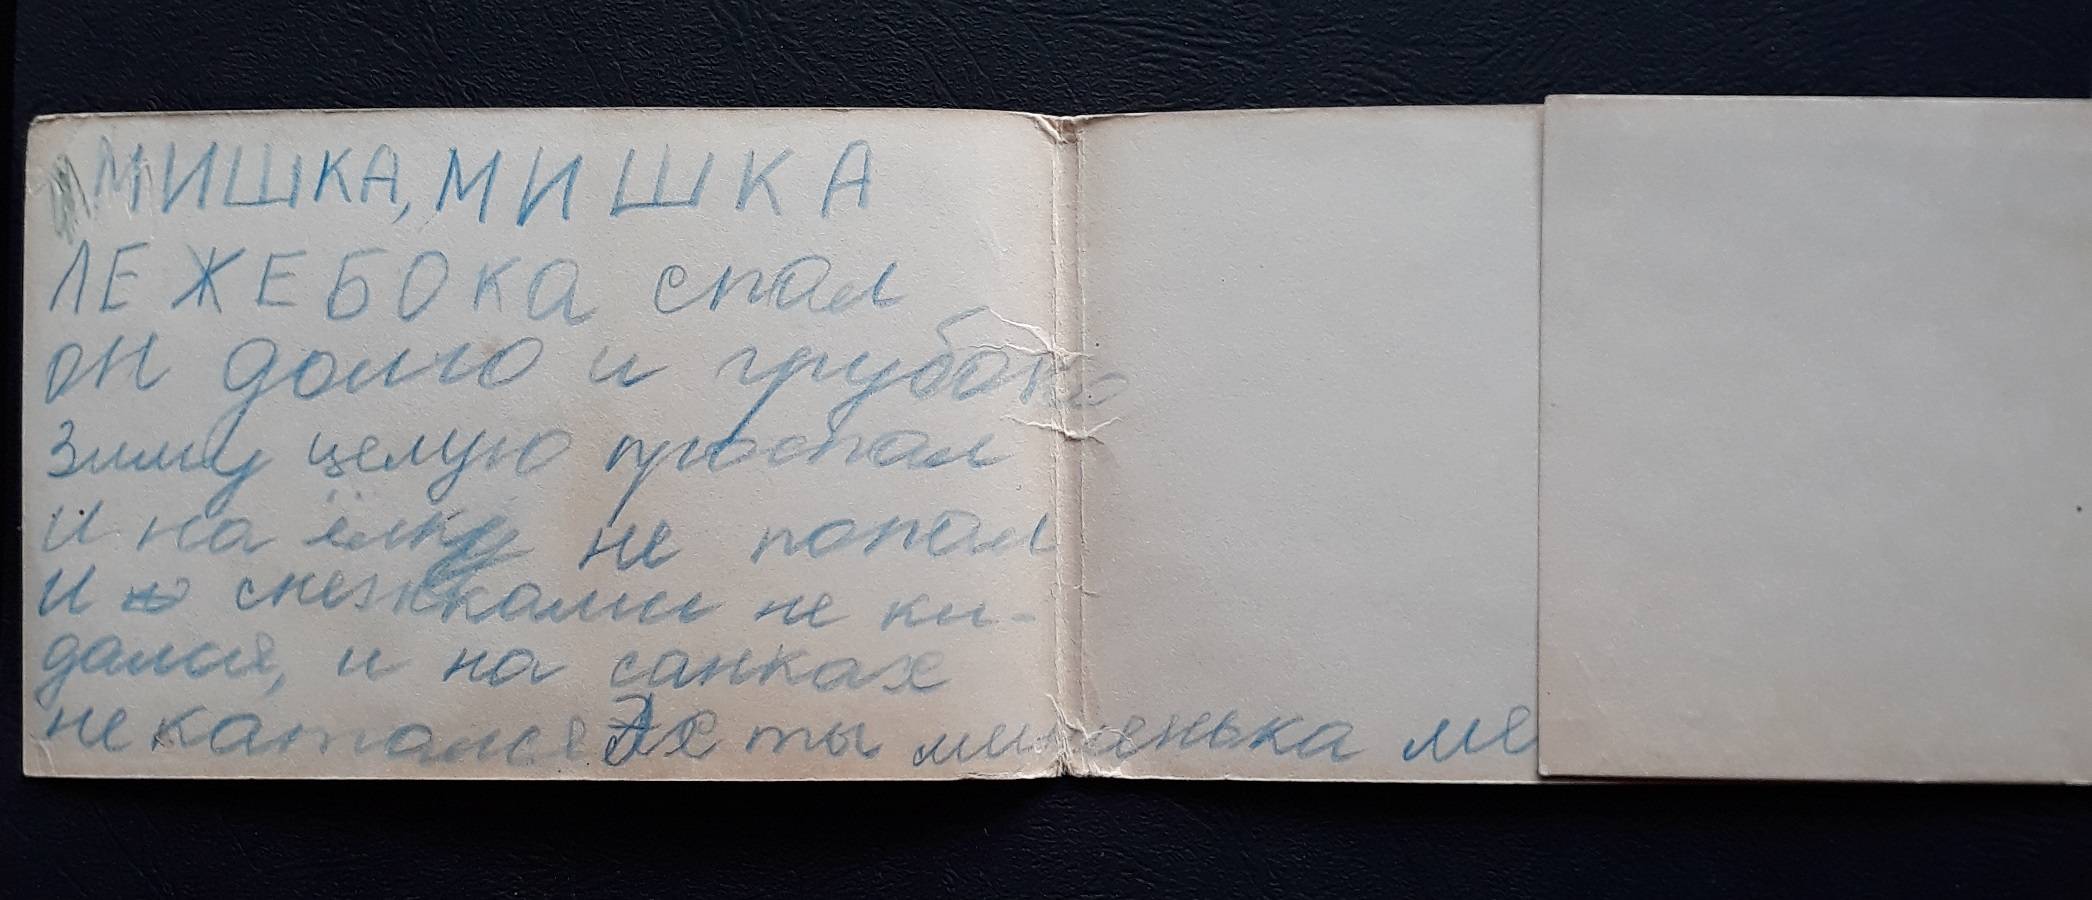 МИШКА, МИШКА
ЛЕЖЕБОКА спал
он долго и грубоко
Зиму целую проспал
И на ёлку не попал
И снежками не ки-
дался, и на санках
не катался Эх ты мишенька ме